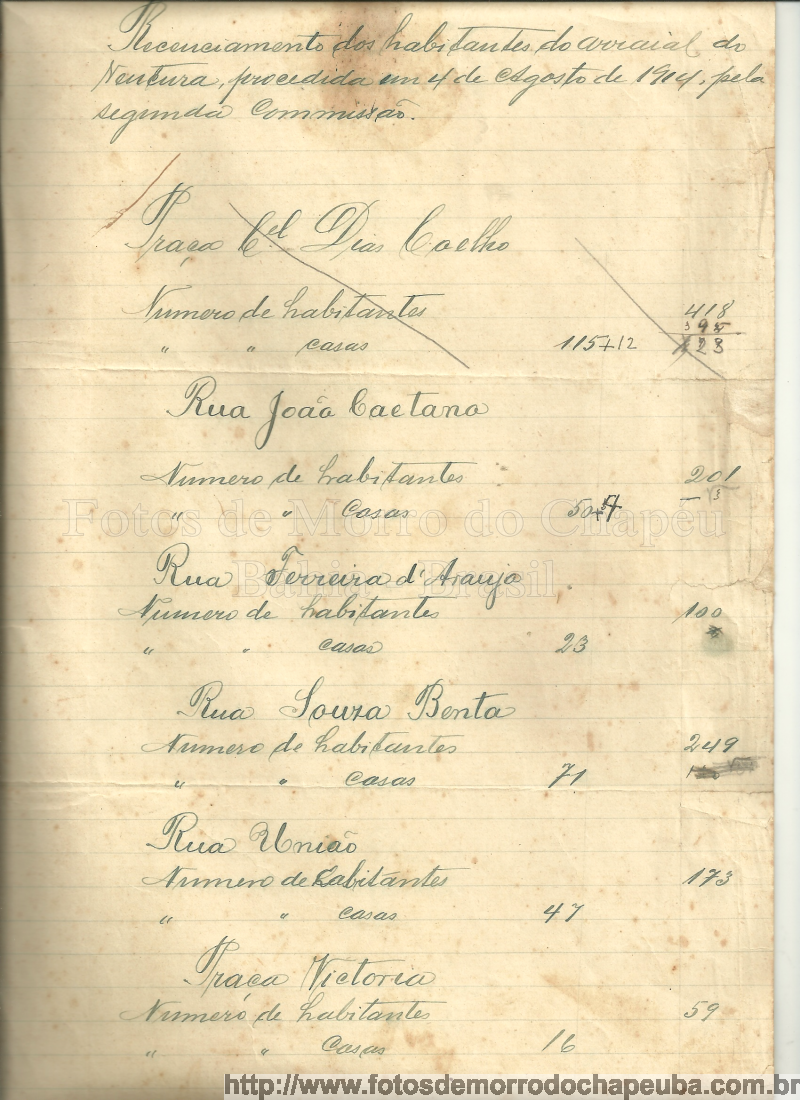 Recenciamento dos habitantes do arraial do
Ventura, procedida em 4 de Agosto de 1914, pela
segunda Commissão.
Praça Cel Dias Coelho
Numero de habitantes 418
" " casas 115+12
Rua João Caetano
Numero de habitantes 201
" " Casas 50+
Fotos de Morro do Chapéu
Bahia Brasil
Rua Ferreira d'Araujo
Numero de habitantes 100
" " casas 23
Rua Souza Benta
Numero de habitantes 249
" " casas 71
Rua União
Numero de habitantes 173
" " casas 47
Praça Victoria
Numero de habitantes 59
" " Casas 16
http://www.fotosdemorrodochapeuba.com.br